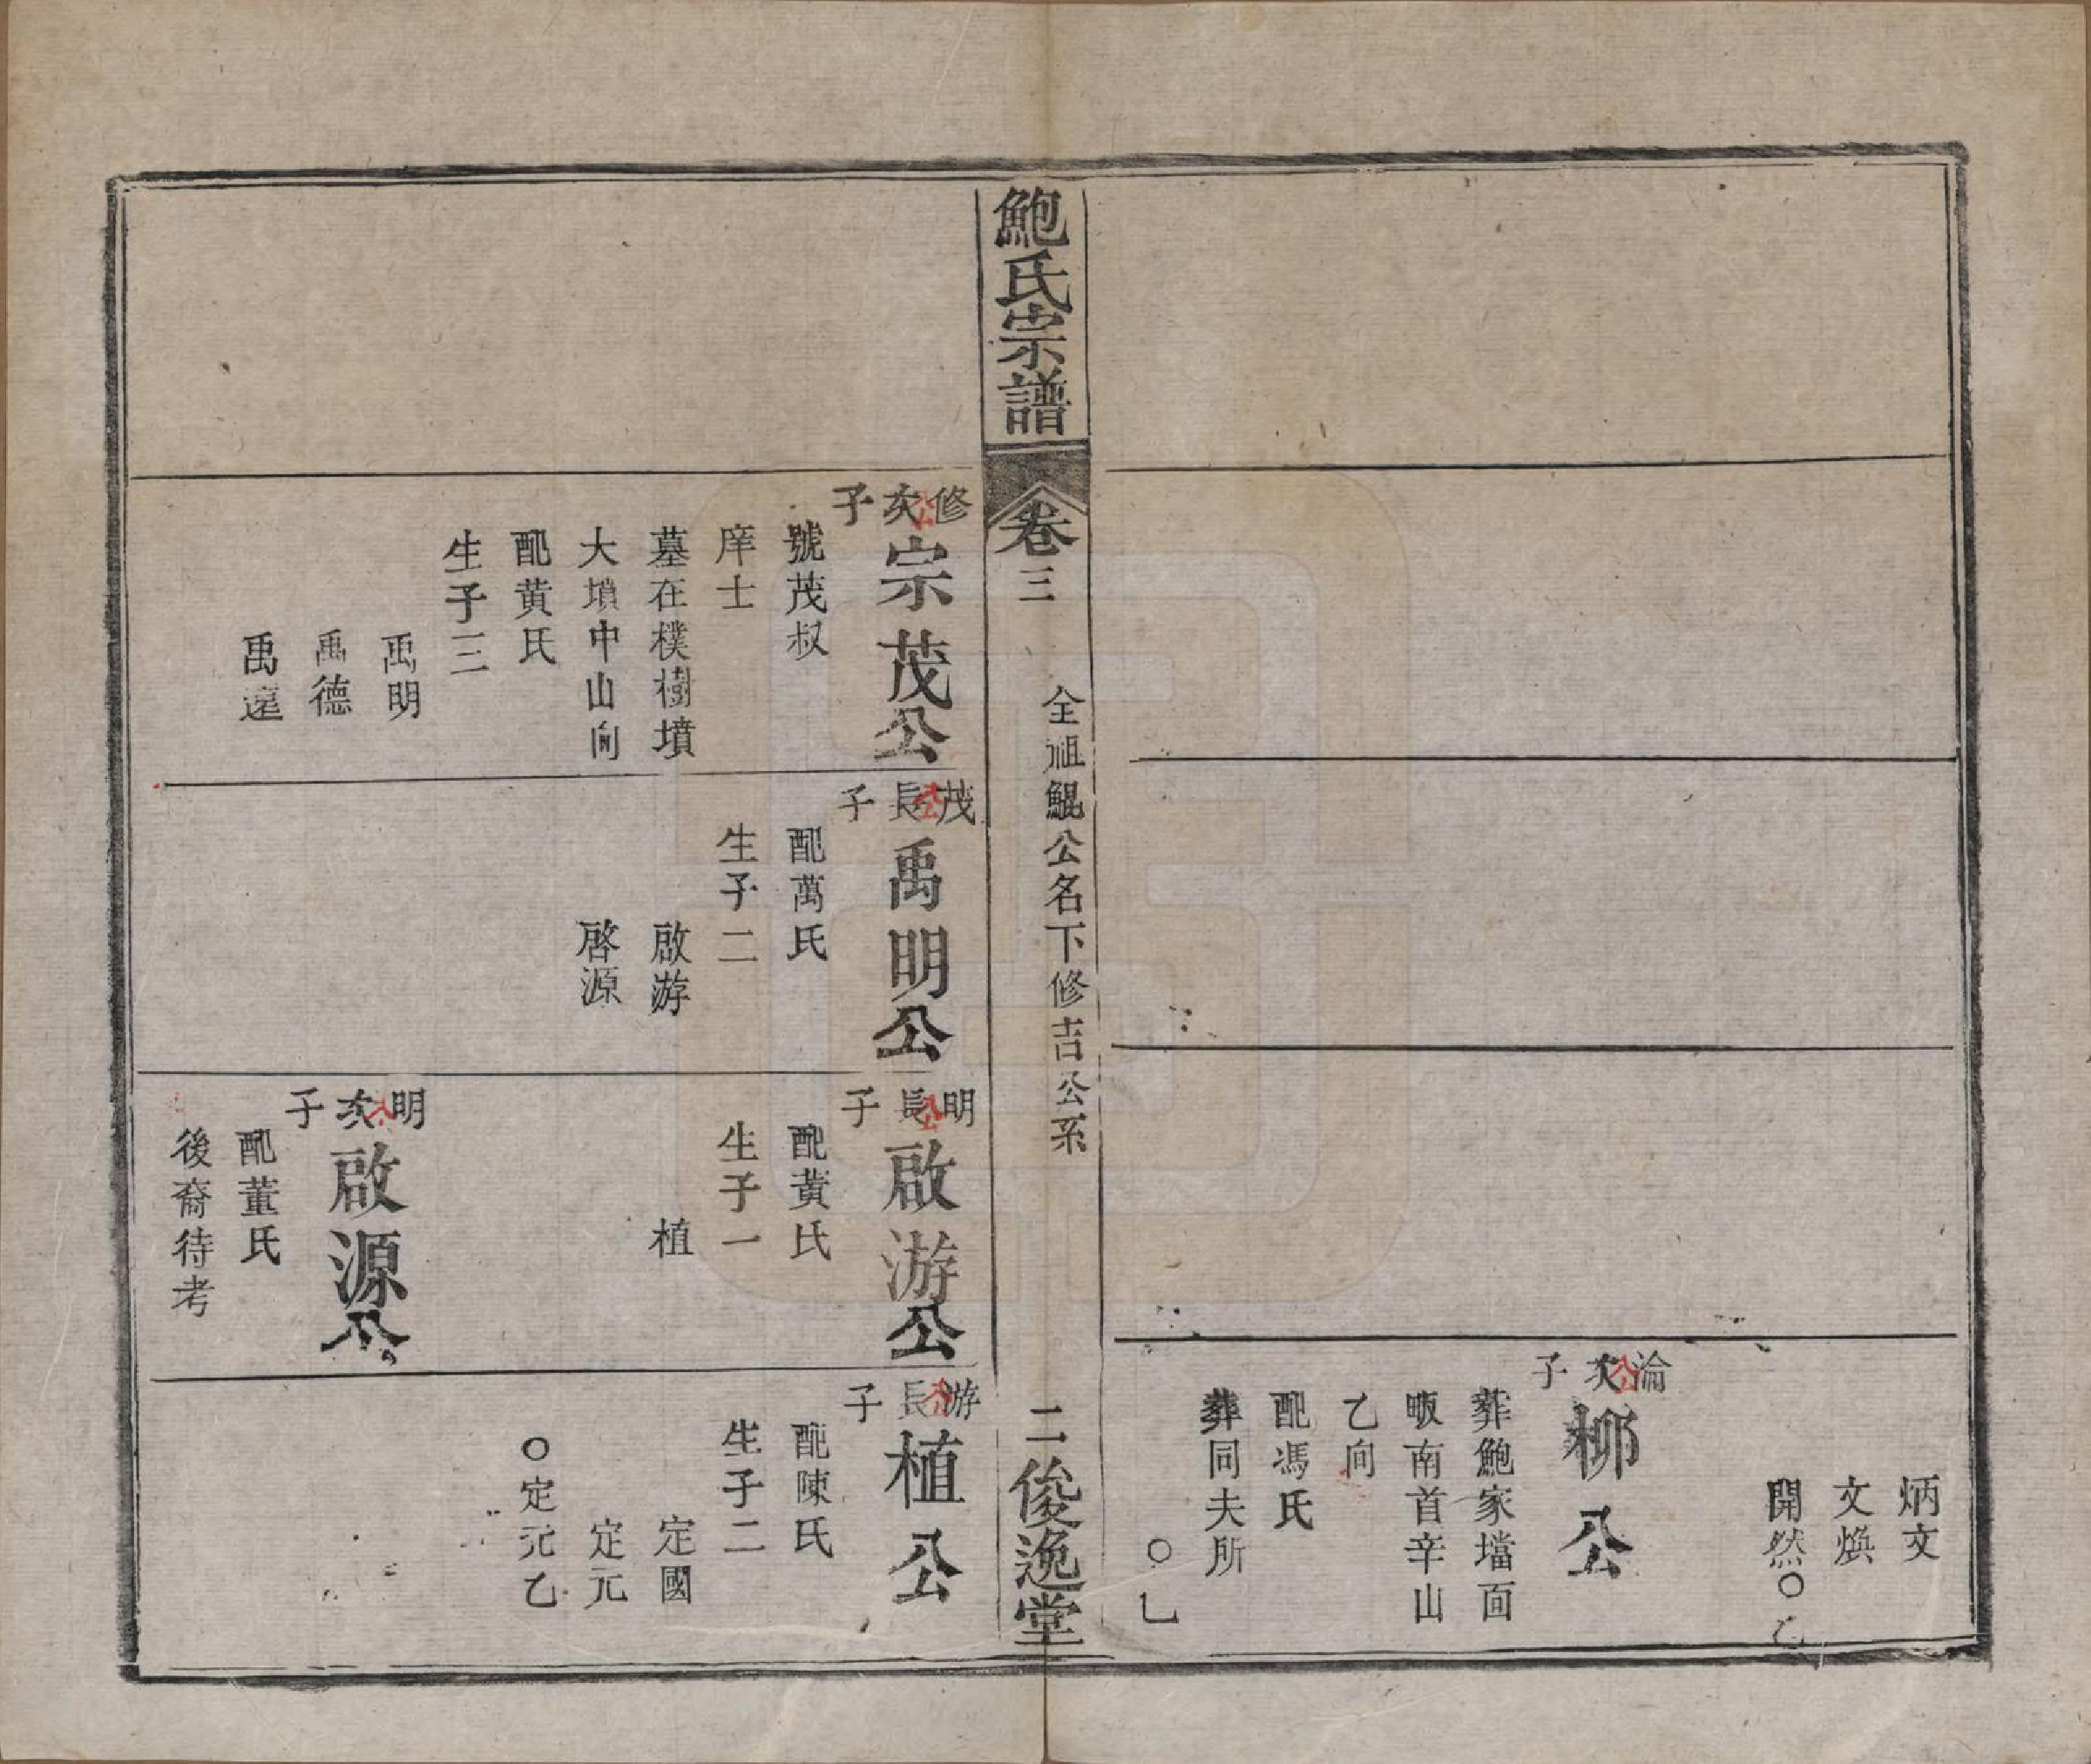 炳文
文煥
開然〇乙
淪公次子
柳公
葬鮑家壋面
畈南首辛山
乙向
配馮氏
葬同夫所
〇乚
鮑氏宗譜
卷三
全祖鯤公名下修吉公系
二俊逸堂
修公次子
宗茂公
號茂叔
庠士
墓在樸樹墳
大墳中山向
配黄氏
生子三
禹明
禹德
禹遠
茂公長子
禹明公
配萬氏
生子二
啟游
啓源
明公長子
啟游公
配黄氏
生子一
植
明公次子
啟源公
配董氏
後裔待考
游公長子
植公
配陳氏
生子二
定國
定元
〇定元乙